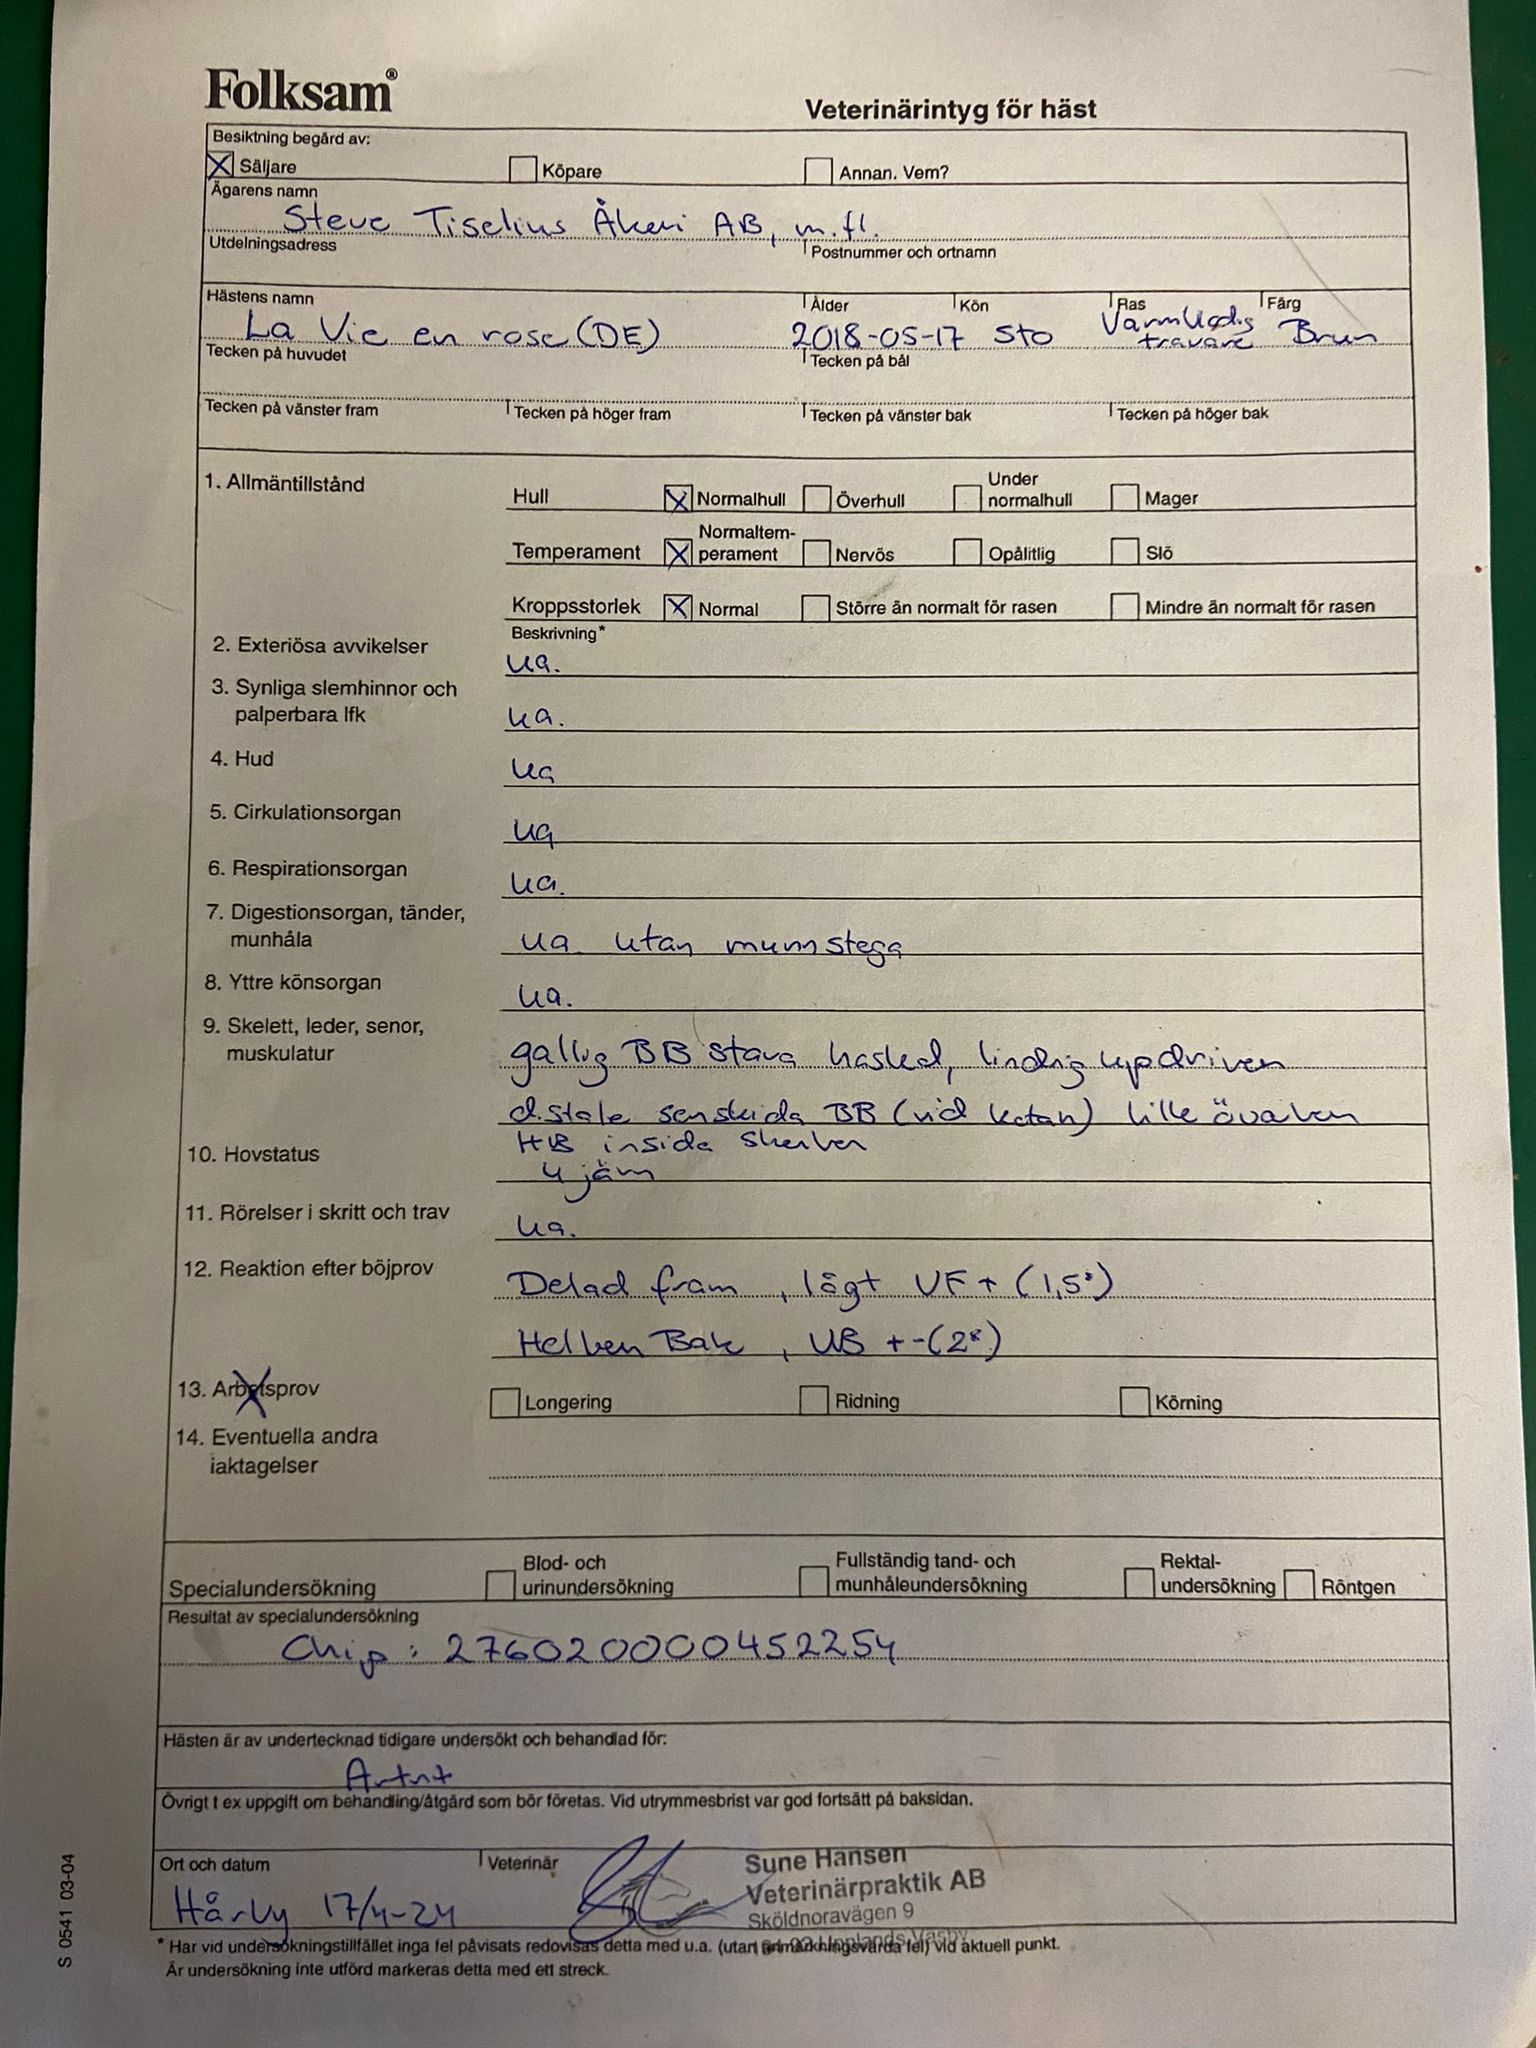 Folksam®
Veterinärintyg för häst
Besiktning begärd av:
X Säljare Köpare Annan. Vem?
Ägarens namn
Steve Tiselius Åkeri AB, m.fl.
Utdelningsadress Postnummer och ortnamn
Hästens namn Ålder Kön Ras Färg
La Vie en rose (DE) 2018-05-17 Sto Varmblodig travare Brun
Tecken på huvudet Tecken på bål
Tecken på vänster fram Tecken på höger fram Tecken på vänster bak Tecken på höger bak
1. Allmäntillstånd
Hull X Normalhull Överhull Under normalhull Mager
Temperament X Normaltem-perament Nervös Opålitlig Slö
Kroppsstorlek X Normal Större än normalt för rasen Mindre än normalt för rasen
Beskrivning*
2. Exteriösa avvikelser ua.
3. Synliga slemhinnor och
palperbara lfk ua.
4. Hud ua
5. Cirkulationsorgan ua
6. Respirationsorgan ua.
7. Digestionsorgan, tänder,
munhåla ua utan munstega
8. Yttre könsorgan ua.
9. Skelett, leder, senor,
muskulatur gallig BB stora hasled, lindrig uppdriven
distale senskida BB (vid kotan) lille överben
HB insida skenben
10. Hovstatus
4 järn
11. Rörelser i skritt och trav ua.
12. Reaktion efter böjprov
Delad fram, lågt VF + (1,5°)
Helben Bak, VB +-(2°)
13. Arbetsprov Longering Ridning Körning
14. Eventuella andra
iaktagelser
Specialundersökning Blod- och urinundersökning Fullständig tand- och munhåleundersökning Rektal-undersökning Röntgen
Resultat av specialundersökning
Chip: 276020000452254
Hästen är av undertecknad tidigare undersökt och behandlad för:
Artrit
Övrigt t ex uppgift om behandling/åtgärd som bör företas. Vid utrymmesbrist var god fortsätt på baksidan.
Ort och datum Veterinär
Hårby 17/4-24
Sune Hansen
Veterinärpraktik AB
Sköldnoravägen 9
Upplands Väsby
* Har vid undersökningstillfället inga fel påvisats redovisas detta med u.a. (utan anmärkningsvärda fel) vid aktuell punkt.
Är undersökning inte utförd markeras detta med ett streck.
S 0541 03-04